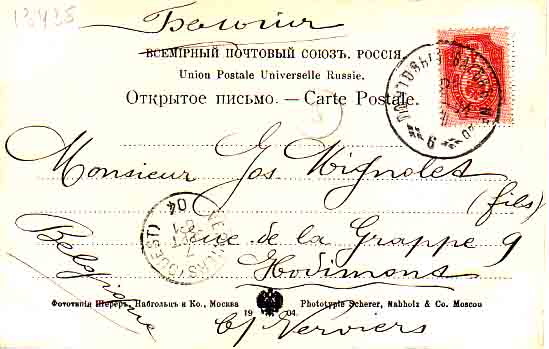 13435
Бельгія
ВСЕМІРНЫЙ ПОЧТОВЫЙ СОЮЗЪ. РОССІЯ.
Union Postale Universelle Russie.
Открытое письмо. — Carte Postale.
Monsieur Jos Mignolet
(fils)
rue de la Grappe 9
Hodimont
Belgique
(OUEST)
04
Фототипія Шереръ, Набгольцъ и Ко., Москва
1904.
Phototypie Scherer, Nabholz & Co. Moscou
s/ Verviers